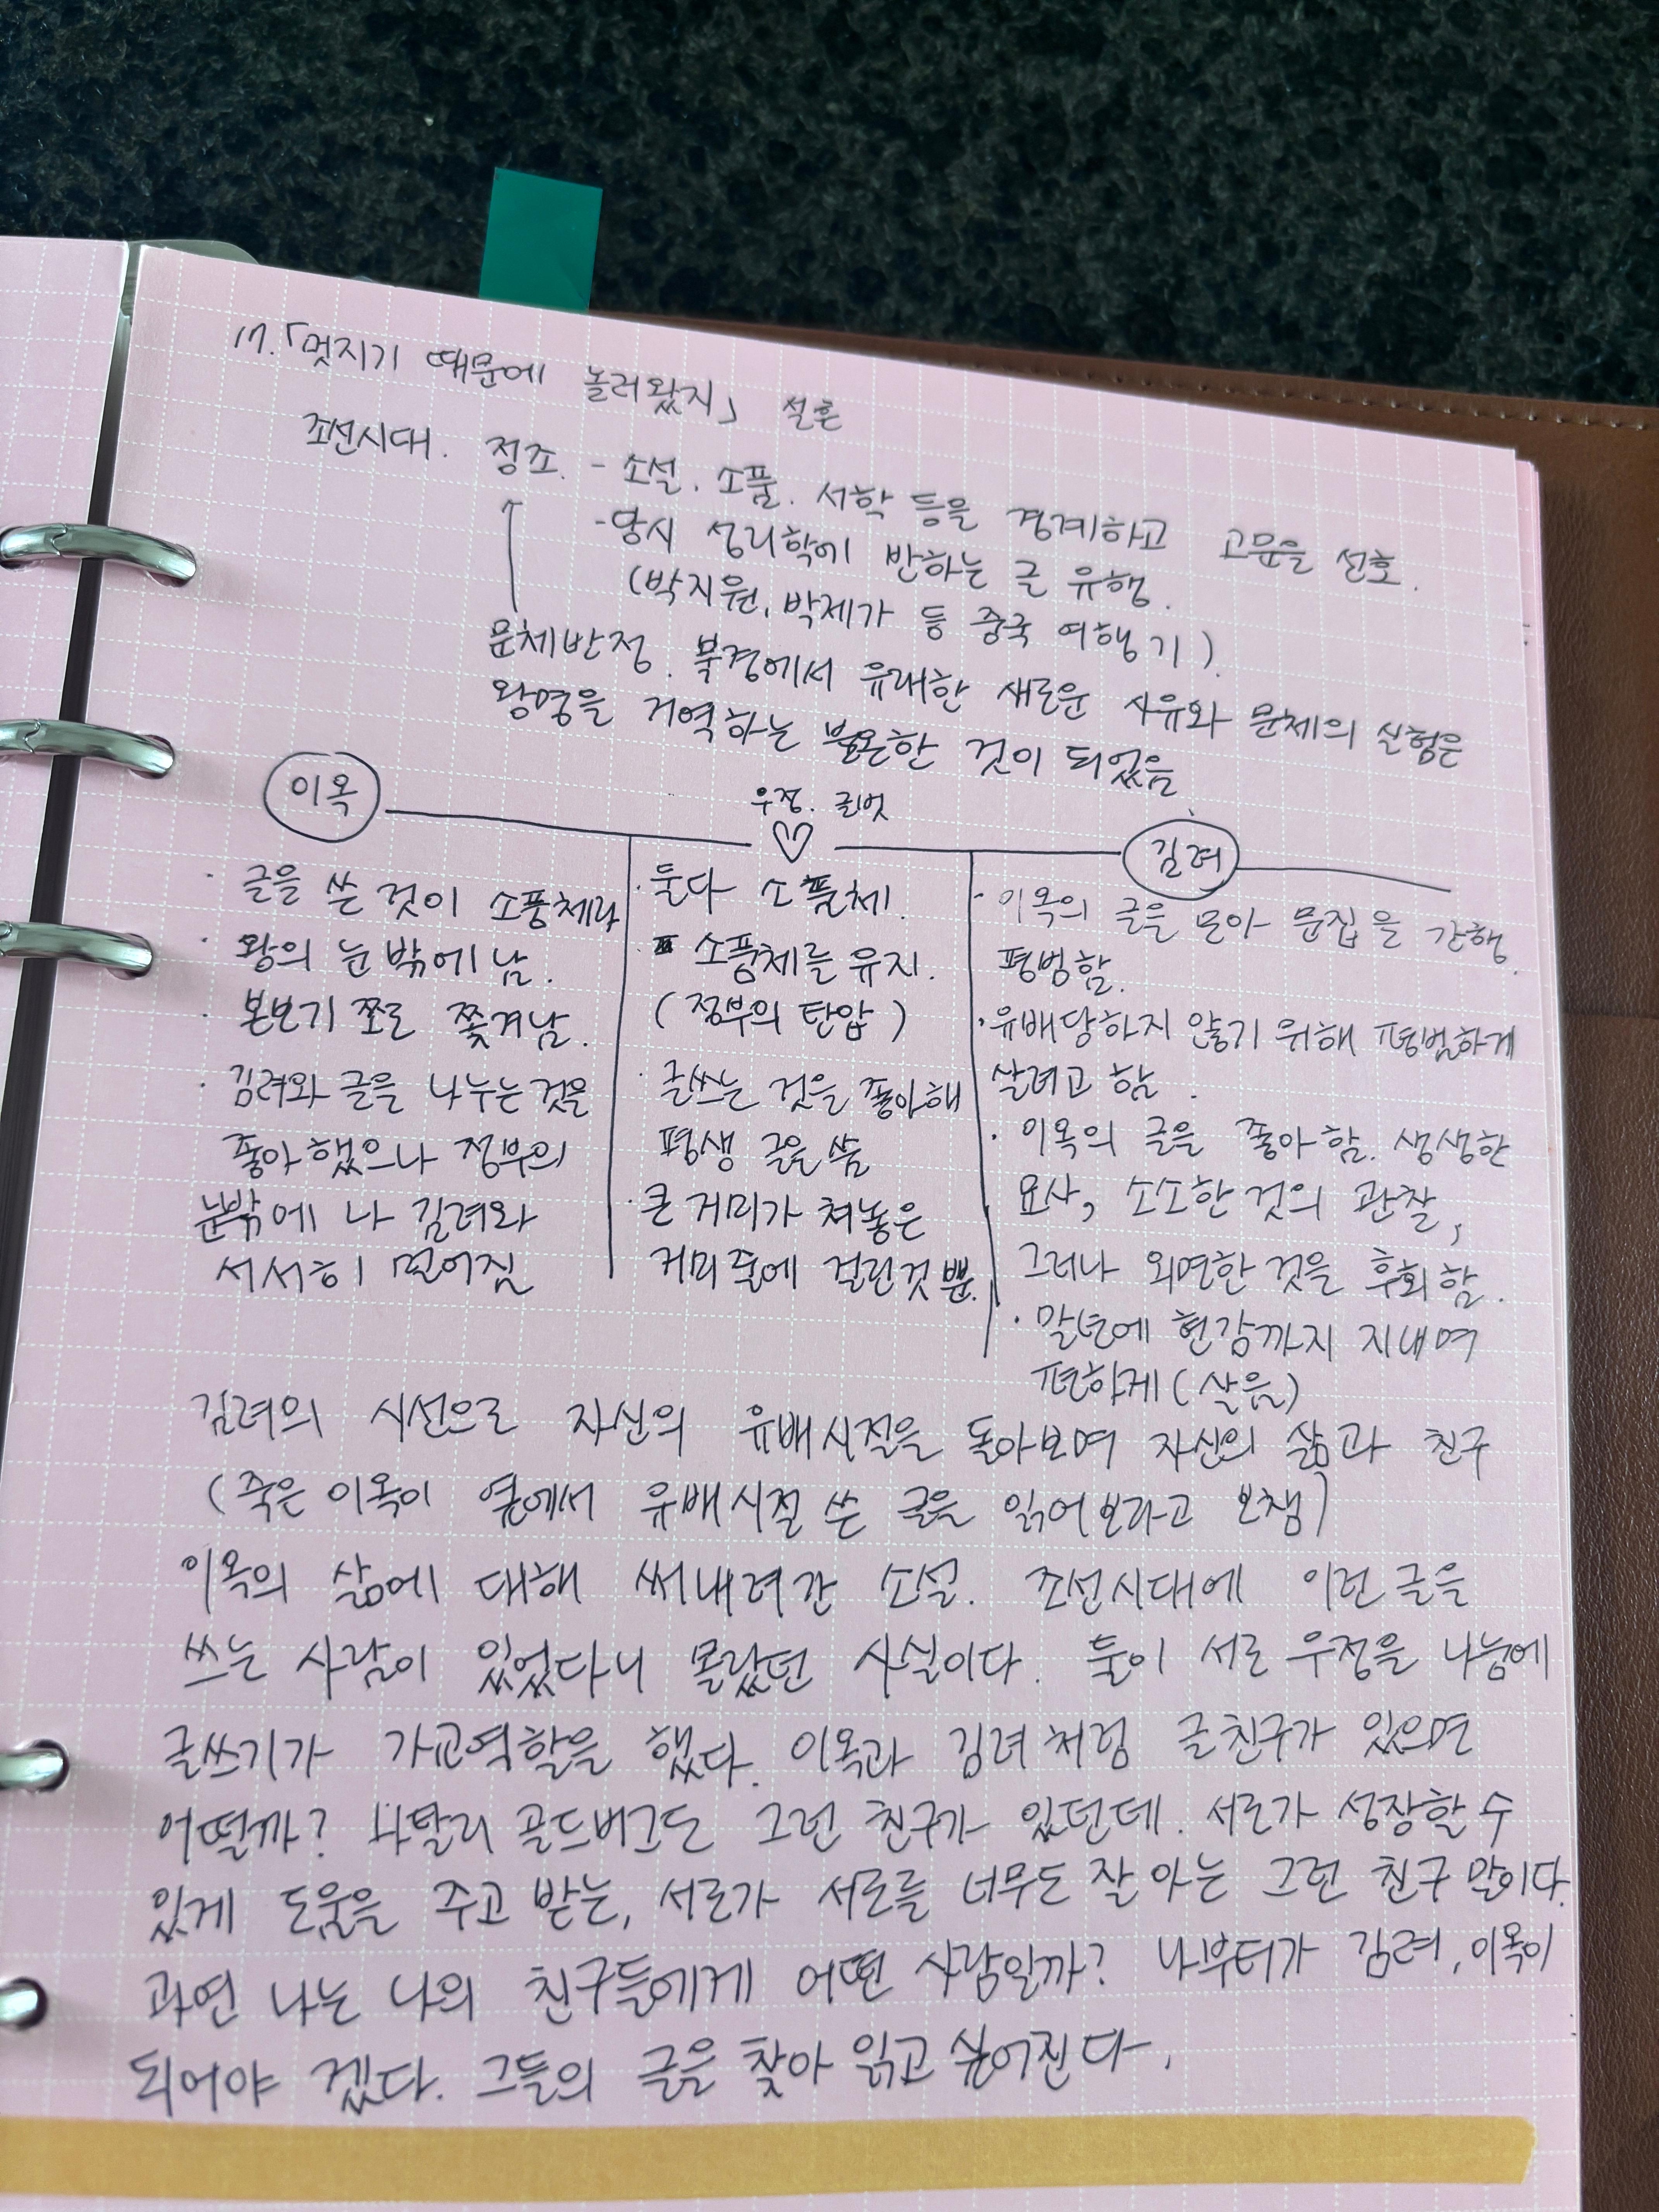 17. 「멋지기 때문에 놀러왔지」 설흔
조선시대. 정조. - 소설. 소품. 서학 등을 경계하고 고문을 선호.
- 당시 성리학에 반하는 글 유행.
(박지원, 박제가 등 중국 여행기)
문체반정. 북경에서 유래한 새로운 사유와 문체의 실험은
왕명을 거역하는 불온한 것이 되었음
이옥
우정. 글벗
김려
· 글을 쓴 것이 소품체라
· 왕의 눈밖에 남.
· 본보기 쪼로 쫓겨남.
· 김려와 글을 나누는 것을
좋아했으나 정부의
눈밖에 나 김려와
서서히 멀어짐
· 둘다 소품체.
소품체를 유지.
(정부의 탄압)
· 글쓰는 것을 좋아해
평생 글을 씀
· 큰 거미가 쳐놓은
거미줄에 걸린것 뿐.
- 이옥의 글을 모아 문집을 간행.
평범함.
· 유배당하지 않기 위해 평범하게
살려고 함.
· 이옥의 글을 좋아함. 생생한
묘사, 소소한 것의 관찰,
그러나 외면한 것을 후회함.
· 말년에 현감까지 지내며
편하게 (살음)
김려의 시선으로 자신의 유배시절을 돌아보며 자신의 삶과 친구
(죽은 이옥이 옆에서 유배시절 쓴 글을 읽어보라고 보챔)
이옥의 삶에 대해 써내려간 소설. 조선시대에 이런 글을
쓰는 사람이 있었다니 몰랐던 사실이다. 둘이 서로 우정을 나눔에
글쓰기가 가교역할을 했다. 이옥과 김려처럼 글친구가 있으면
어떨까? 나탈리 골드버그도 그런 친구가 있던데. 서로가 성장할 수
있게 도움을 주고 받는, 서로가 서로를 너무도 잘 아는 그런 친구 말이다.
과연 나는 나의 친구들에게 어떤 사람일까? 나부터가 김려, 이옥이
되어야 겠다. 그들의 글을 찾아 읽고 싶어진다.